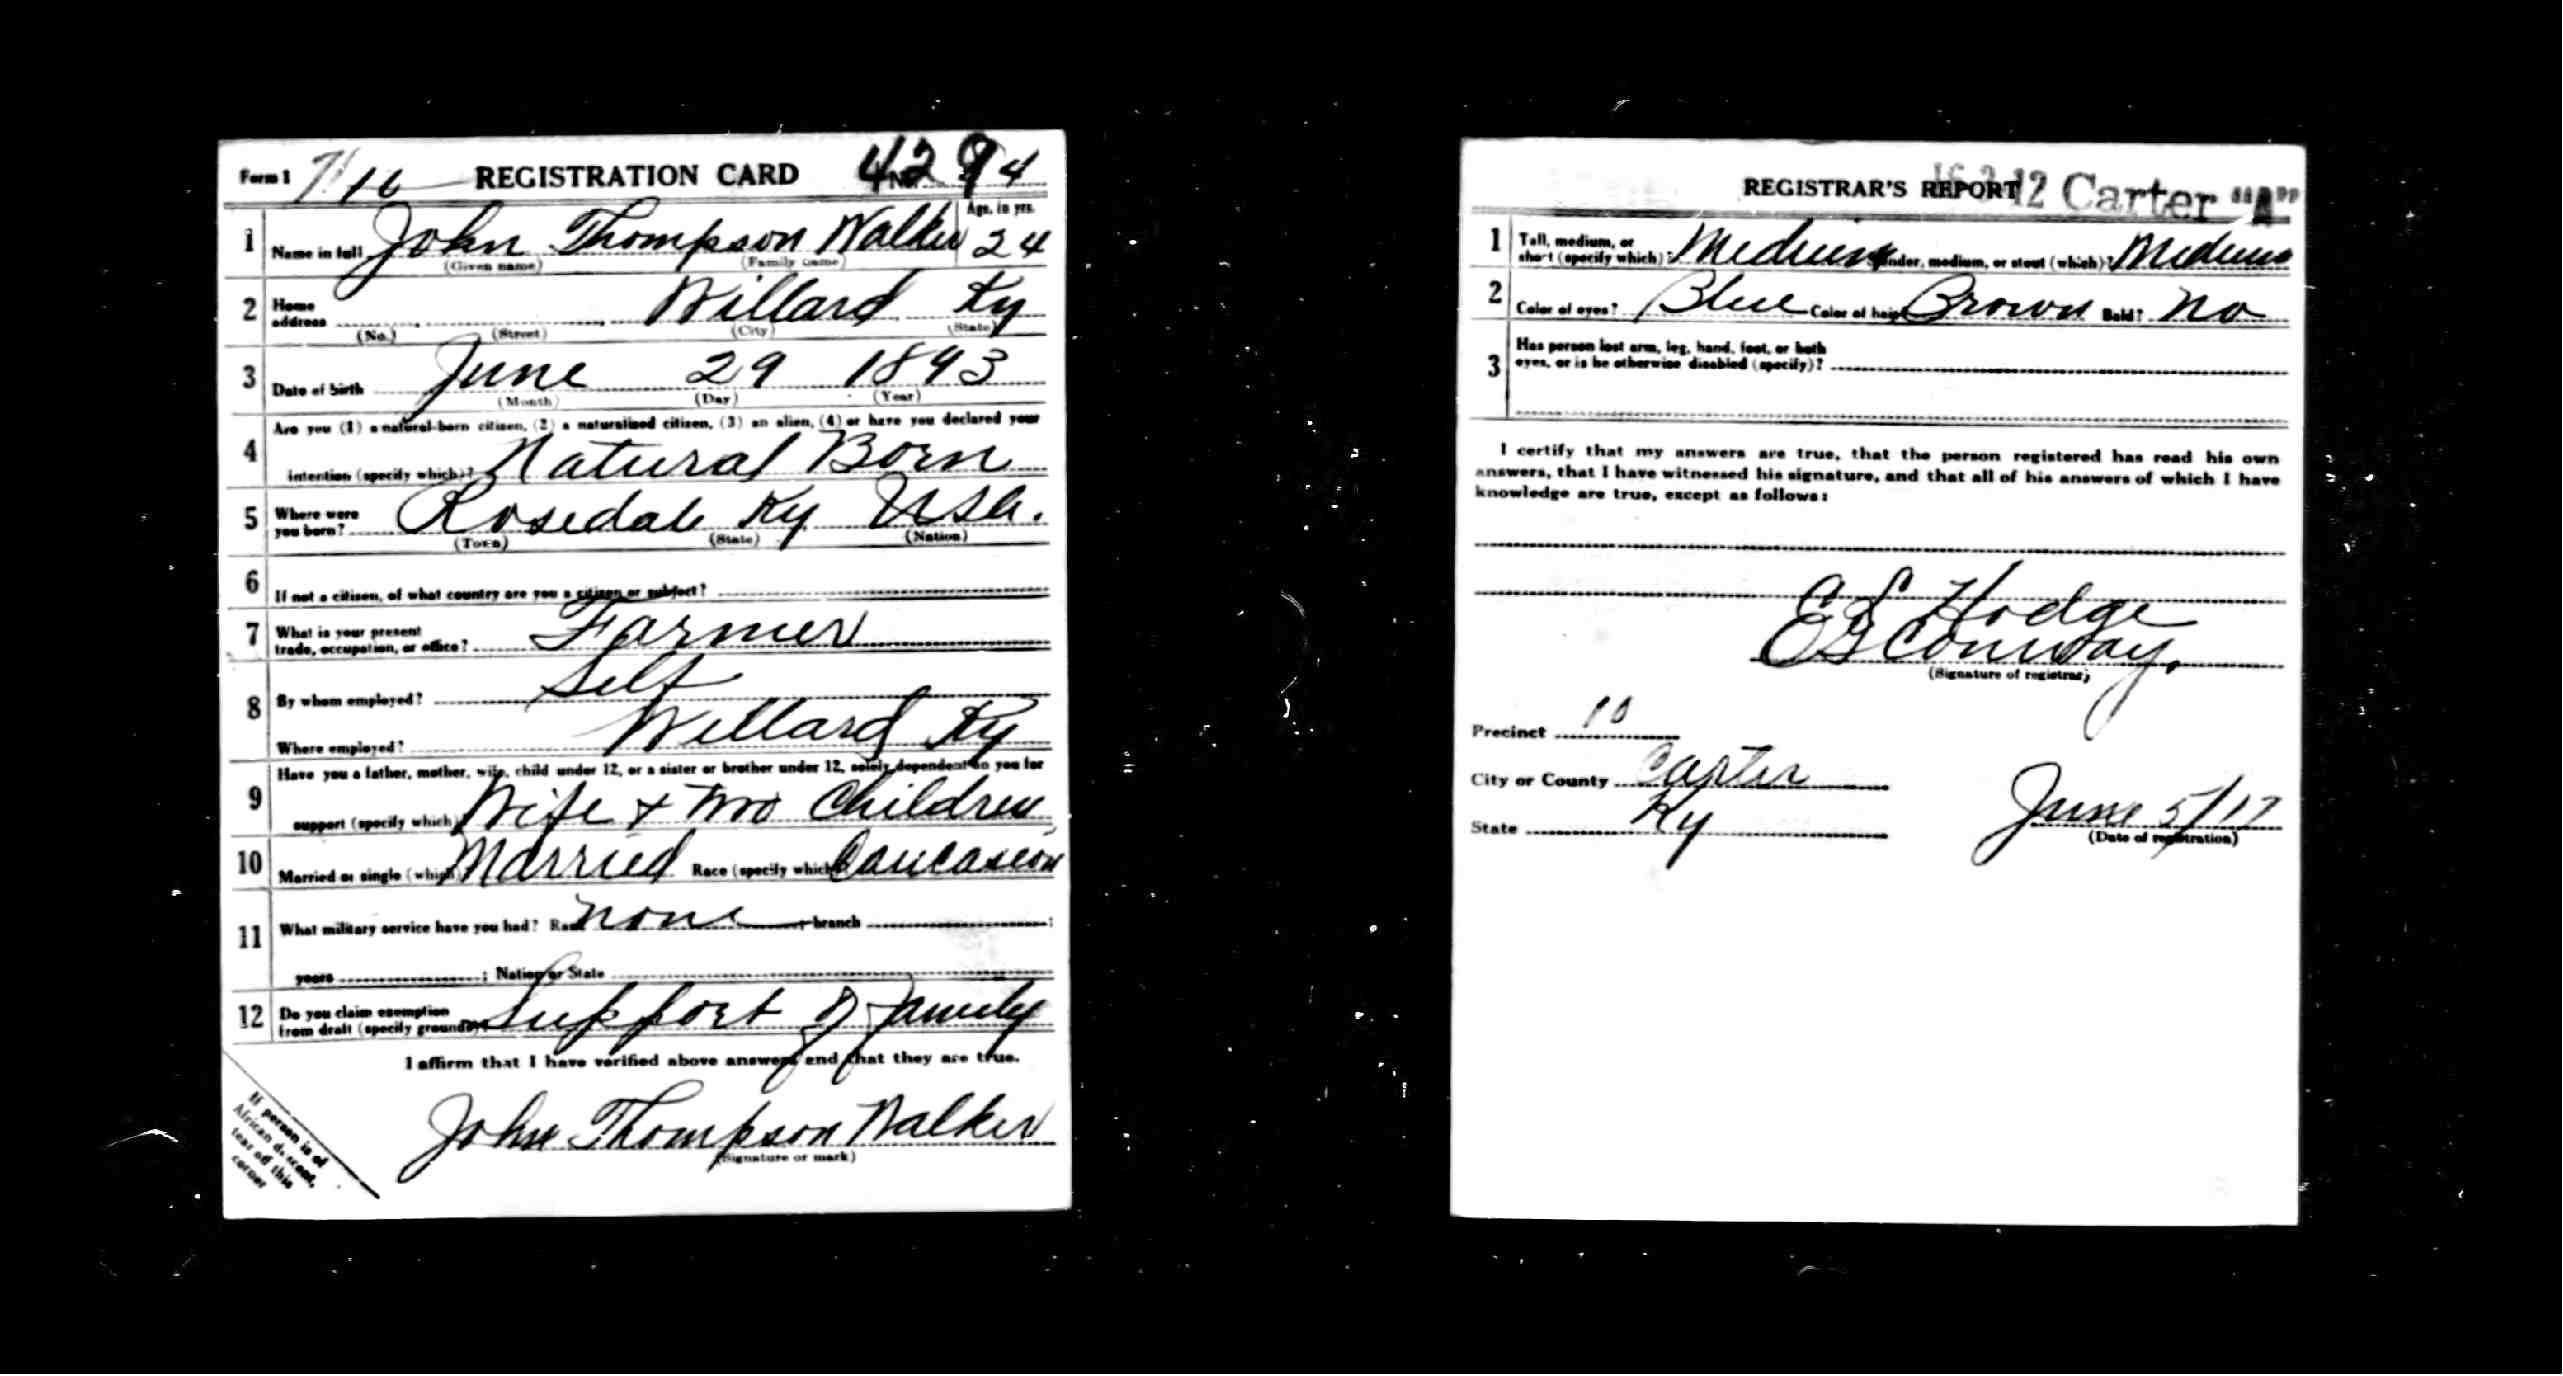 Form 1 7/16 REGISTRATION CARD No. 4294
1 Name in full John Thompson Walker Age, in yrs. 24
(Given name) (Family name)
2 Home address Willard Ky
(No.) (Street) (City) (State)
3 Date of birth June 29 1893
(Month) (Day) (Year)
4 Are you (1) a natural-born citizen, (2) a naturalized citizen, (3) an alien, (4) or have you declared your
intention (specify which)? Natural Born
5 Where were you born? Rosedale Ky USA.
(Town) (State) (Nation)
6 If not a citizen, of what country are you a citizen or subject?
7 What is your present trade, occupation, or office? Farmer
8 By whom employed? Self
Where employed? Willard Ky
9 Have you a father, mother, wife, child under 12, or a sister or brother under 12, solely dependent on you for
support (specify which) Wife + Two Children
10 Married or single (which) Married Race (specify which) Caucasion
11 What military service have you had? Rank none ; branch ;
years ; Nation or State
12 Do you claim exemption from draft (specify grounds)? Support of Family
I affirm that I have verified above answers and that they are true.
John Thompson Walker
(Signature or mark)
If person is of
African descent,
tear off this
corner
REGISTRAR'S REPORT 12 Carter "A"
1 Tall, medium, or short (specify which)? Medium Slender, medium, or stout (which)? Medium
2 Color of eyes? Blue Color of hair? Brown Bald? No
3 Has person lost arm, leg, hand, foot, or both
eyes, or is he otherwise disabled (specify)?
I certify that my answers are true, that the person registered has read his own
answers, that I have witnessed his signature, and that all of his answers of which I have
knowledge are true, except as follows:
E L Hodge
E G Conway.
(Signature of registrar)
Precinct 10
City or County Carter
State Ky June 5/17
(Date of registration)